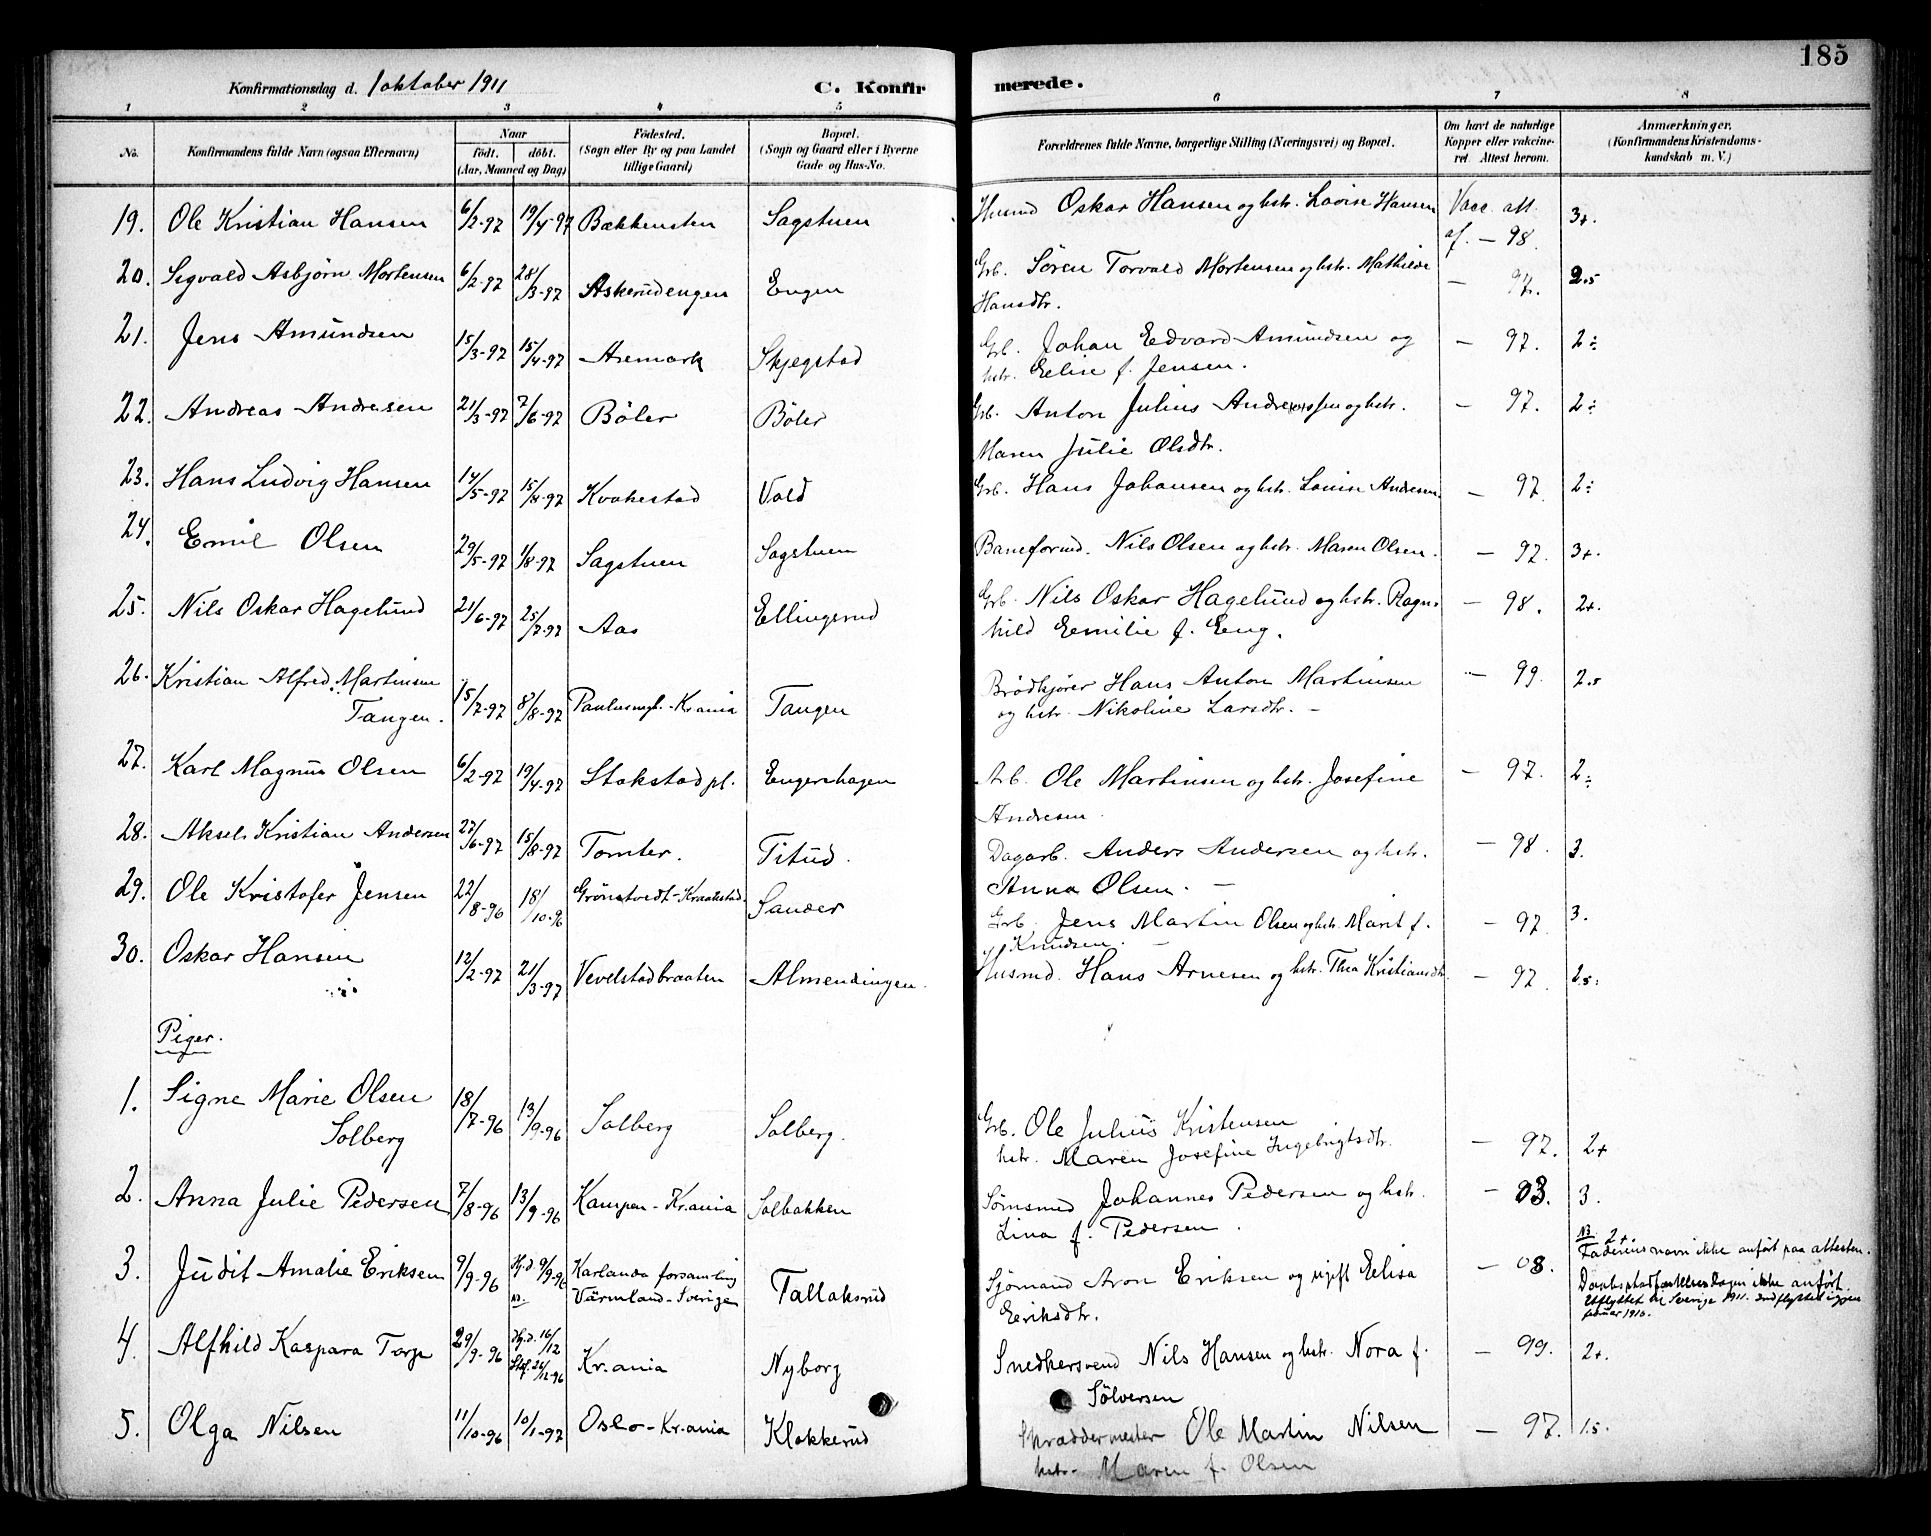 185
Konfirmationsdag d. 1 oktober 1911
C. Konfirmerede.
1 2 3 4 5 6 7 8
No. Konfirmandens fulde Navn (ogsaa Efternavn) Naar født. døbt. (Aar, Maaned og Dag) Födested. (Sogn eller By og paa Landet tillige Gaard) Bopæl. (Sogn og Gaard eller i Byerne Gade og Hus-No. Forældrenes fulde Navne, borgerlige Stilling (Næringsvei) og Bopæl. Om havt de naturlige Kopper eller vakcineret. Attest herom. Anmærkninger. (Konfirmandens Kristendomskundskab m. V.)
19. Ole Kristian Hansen 6/2-97 19/4-97 Bækkensten Sagstuen Husmd Oskar Hansen og hstr. Lovise Hansen Vacc. att. af. - 98. 3+.
20. Sigvald Asbjørn Mortensen 6/2-97 28/3-97 Askerudengen Engen Grb. Sören Torvald Mortensen og hstr. Mathilde Hansdtr. - 97. 2.5
21. Jens Amundsen 15/3-97 15/4-97 Aremark Skjegstad Grb. Johan Edvard Amundsen og hstr. Elise f. Jensen. - 97. 2÷
22. Andreas Andresen 21/3-97 7/6-97 Böler Böler Grb. Anton Julius Andreassen og hstr. Maren Julie Olsdtr. - 97. 2÷
23. Hans Ludvig Hansen 14/5-97 15/8-97 Kvakestad Vold Grb. Hans Johansen og hstr. Louise Andresen. - 97. 2÷
24. Emil Olsen 29/5-97 1/8-97 Sagstuen Sagstuen Baneformd. Nils Olsen og hstr. Maren Olsen. - 97. 3+.
25. Nils Oskar Hagelund 21/6-97 25/7-97 Aas Ellingsrud Grb. Nils Oskar Hagelund og hstr. Ragnhild Emilie f. Eng. - 98. 2+.
26. Kristian Alfred Martinsen Tangen. 15/7-97 8/8-97 Paulusmgh.-Kr.ania Tangen Brödkjører Hans Anton Martinsen og hstr. Nikoline Larsdtr. - 99. 2.5
27. Karl Magnus Olsen 6/2-97 19/4-97 Stokstad pl. Engerhagen Arb. Ole Martinsen og hstr. Josefine Andresen - 97. 2÷
28. Aksel Kristian Andersen 27/6-97 15/8-97 Tomter. Titud. Dagarb. Anders Andersen og hstr. Anna Olsen. - 98. 3.
29. Ole Kristofer Jensen 22/8-96 18/10-96 Grönstvedt-Kraakstad Sander Grb. Jens Martin Olsen og hstr. Marit f. Knudsen. - 97. 3.
30. Oskar Hansen 12/2-97 21/3-97 Vevelstadbraaten Almendingen. Husmd. Hans Arnesen og hstr. Thea Kristiansdtr. - 97. 2.5.
Piger.
1. Signe Marie Olsen Solberg 18/7-96 13/9-96 Solberg Solberg. Grb. Ole Julius Kristensen hstr. Maren Josefine Ingebrigtsdtr. - 97. 2+
2. Anna Julie Pedersen 7/8-96 13/9-96 Kampen-Kr.ania Solbakken Sømsmed Johannes Pedersen og hstr. Lina f. Pedersen. - 03. 3.
3. Judit Amalie Eriksen 9/9-96 Hj.d. 9/9-96 Karlanda forsamling Värmland-Sverige Tallaksrud Sjømand Aron Eriksen og ugift Elisa Eriksdtr. - 08. NB. 2+ Faderens navn ikke anført paa attesten. Daabsstadfæstelsesdagen ikke anført. Utflyttet til Sverige 1911.
4. Alfhild Kaspara Torp 29/9-96 Hj.d. 16/12 Stf. 26/12-96 Kr.ania Nyborg Snedkersvend Nils Hansen og hstr. Nora f. Sölversen - 99. 2+.
5. Olga Nilsen 11/10-96 10/1-97 Oslo-Kr.ania Klokkerud Skræddermester Ole Martin Nilsen hstr. Maren f. Olsen - 97. 1.5.